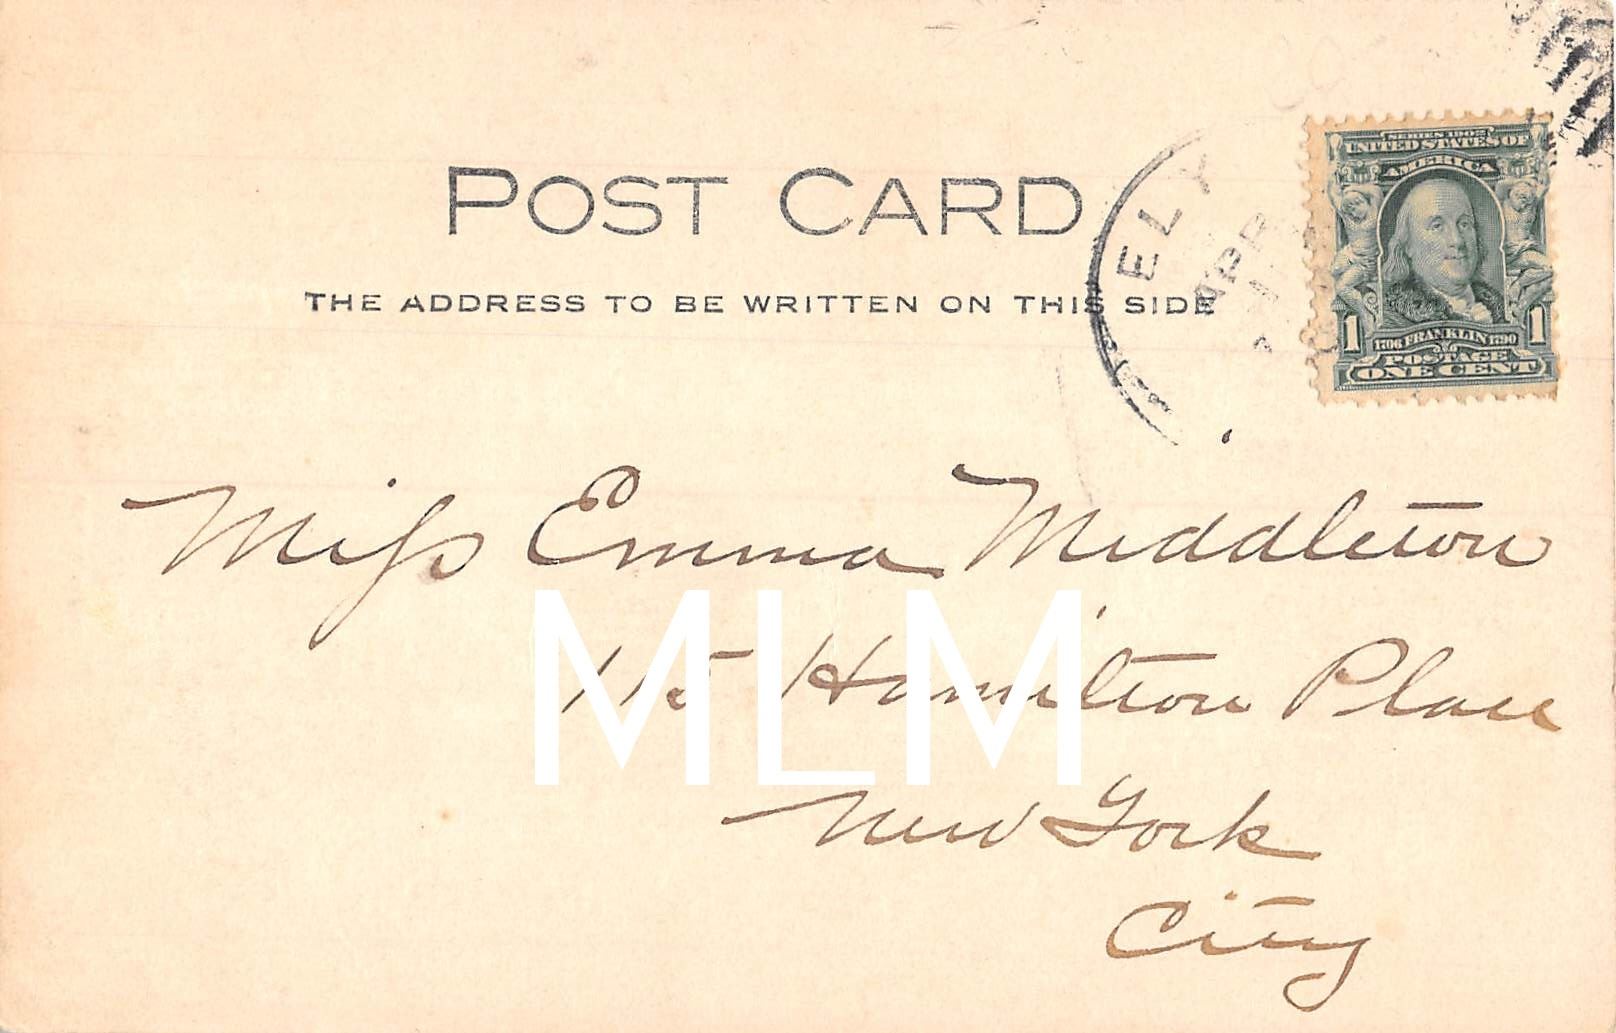 POST CARD
THE ADDRESS TO BE WRITTEN ON THIS SIDE
ELY
APR
SERIES 1902
UNITED STATES OF
AMERICA
1 1706 FRANKLIN 1790 1
POSTAGE
ONE CENT
Miss Emma Middleton
115 Hamilton Place
New York
City
MLM